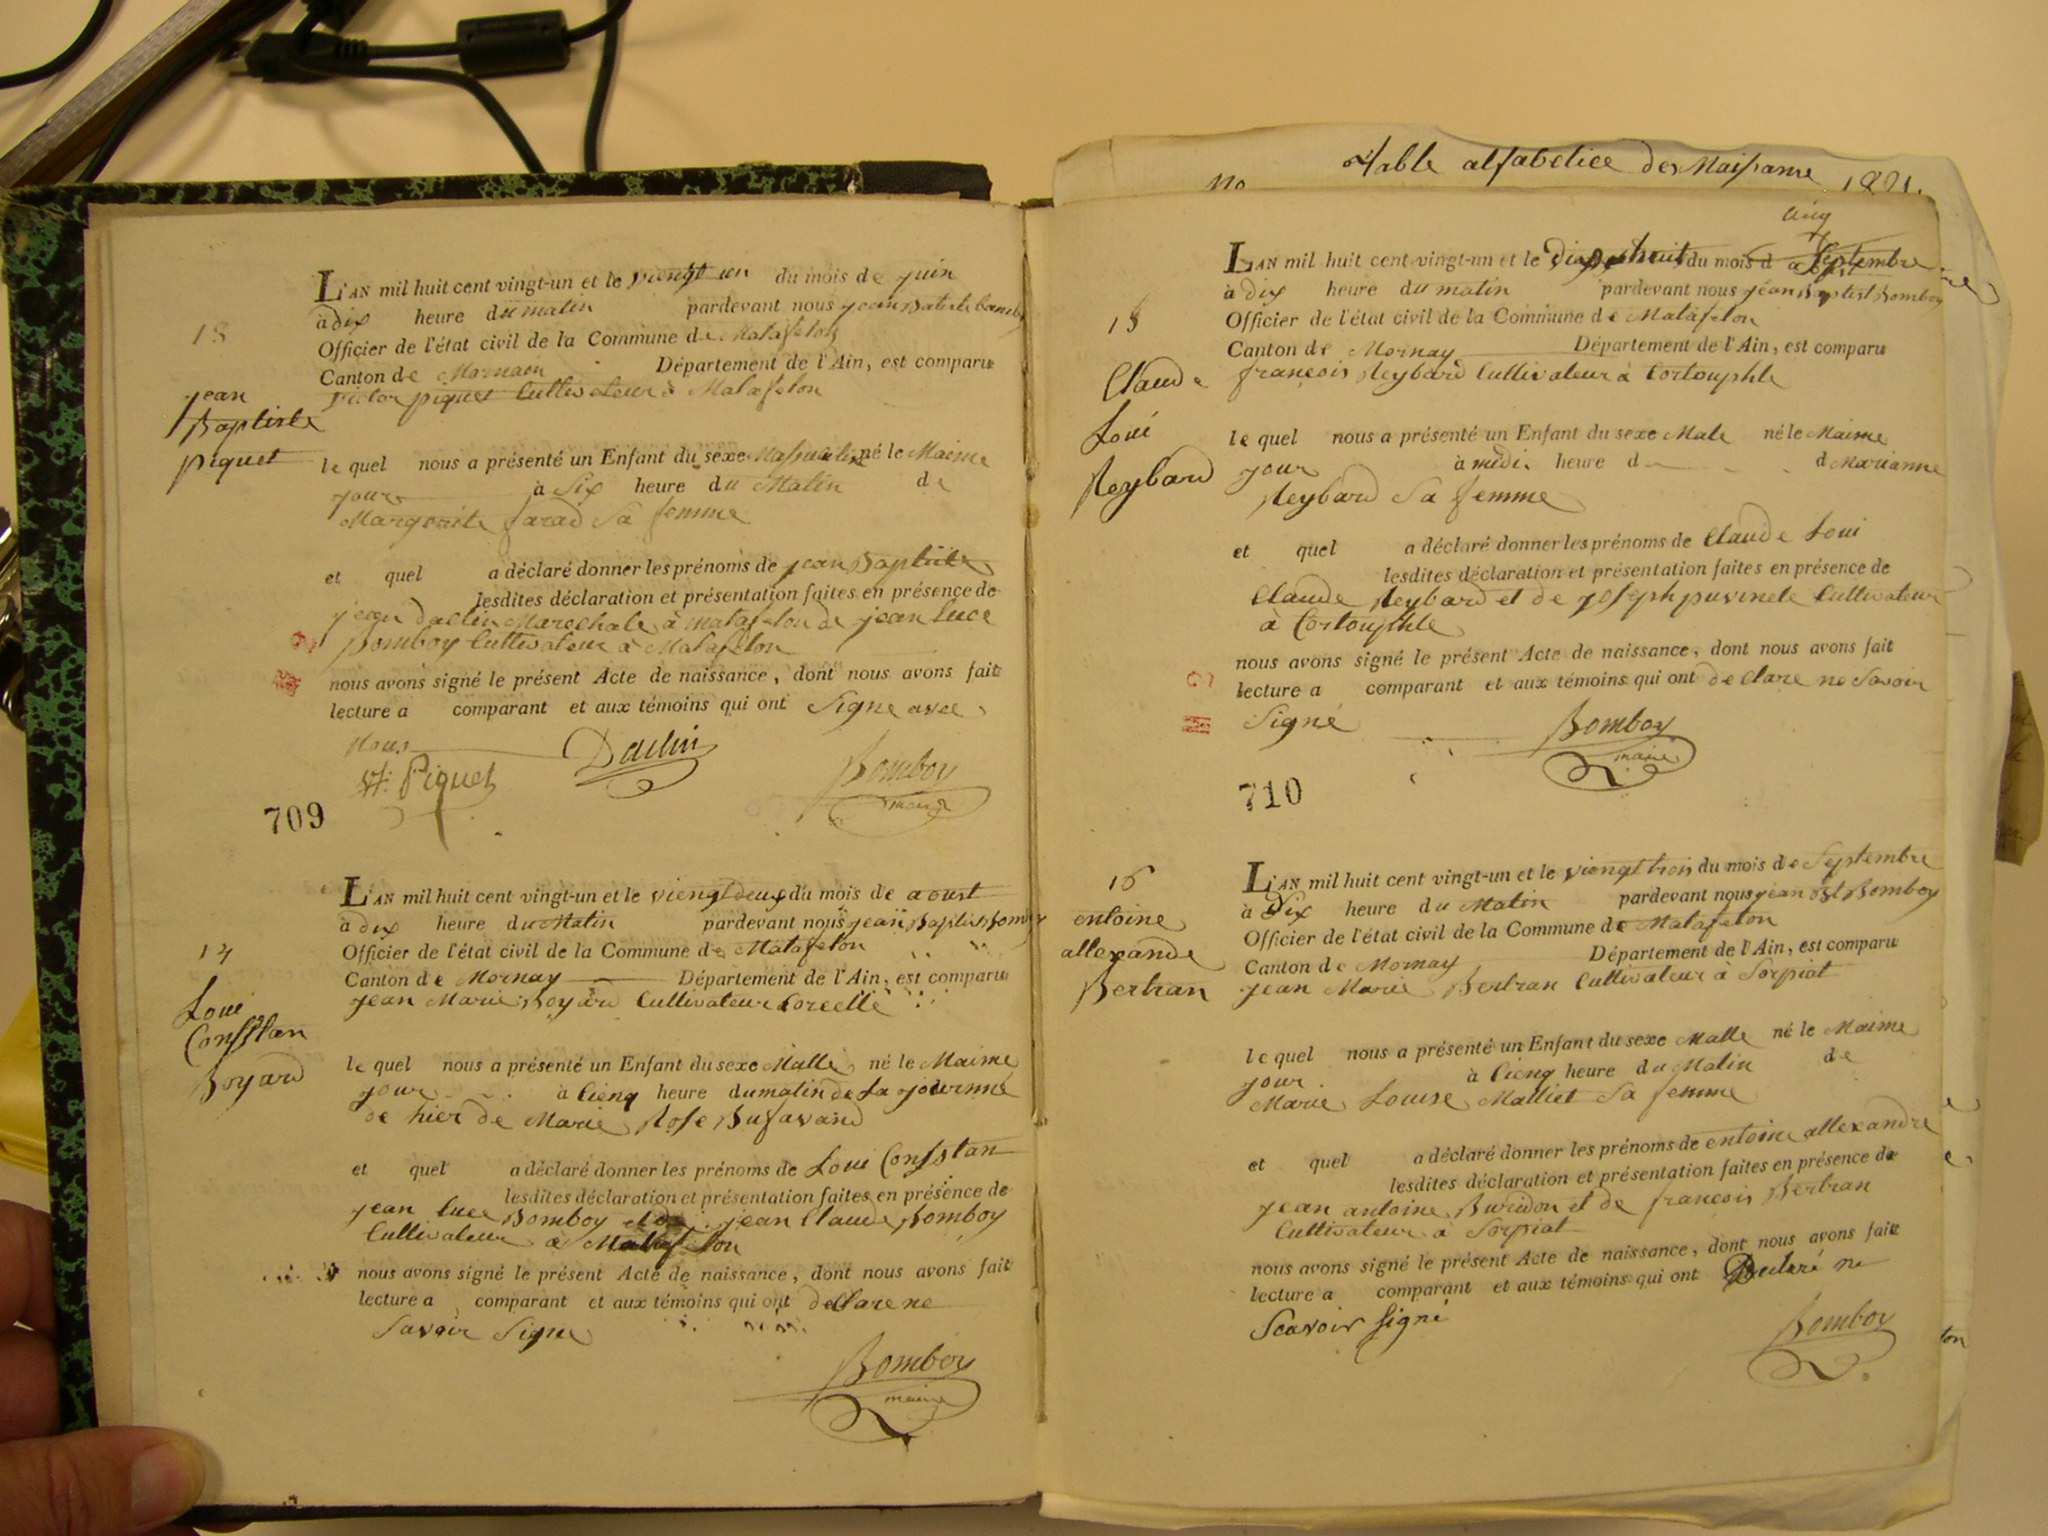 13
jean
Baptiste
piquet
L'AN mil huit cent vingt-un et le viengt un du mois de juin
à dix heure du matin pardevant nous jean Batiste bomboy
Officier de l'état civil de la Commune de Matafelon
Canton de Département de l'Ain, est comparu
victor piquet Cultivateur à Matafelon
le quel nous a présenté un Enfant du sexe né le Maime
jour à Six heure du Matin de
Marguerite farad Sa femme
et quel a déclaré donner les prénoms de jean Baptiste
lesdites déclaration et présentation faites en présence de
jean daclin Marechale à matafelon de jean Luce
Bomboy Cultivateur à Matafelon
nous avons signé le présent Acte de naissance, dont nous avons fait
lecture a comparant et aux témoins qui ont Signe avec
Nous
Vr. Piquet Daclin Bomboy
maire
709
14
Loui
Consstan
Boyard
L'AN mil huit cent vingt-un et le viengt deux du mois de aoust
à dix heure du Matin pardevant nous jean Baptist Bomboy
Officier de l'état civil de la Commune de Matafelon
Canton de Mornay Département de l'Ain, est comparu
jean Marie Boyard Cultivateur Corcelle
le quel nous a présenté un Enfant du sexe Malle né le Maime
jour à Cienq heure du matin de La journné
de hier de Marie Rose Bufavand
et quel a déclaré donner les prénoms de Loui Consstan
lesdites déclaration et présentation faites en présence de
jean Luce Bomboy et de jean Claude Bomboy
Cultivateur à Matafelon
nous avons signé le présent Acte de naissance, dont nous avons fait
lecture a comparant et aux témoins qui ont de Clare ne
Savoir Signe
Bomboy
maire
Table alfabetice des Naissance 1821.
no
cinq
15
Claude
Loui
Reybard
L'AN mil huit cent vingt-un et le Dix huit du mois d Septembre
à dix heure du matin pardevant nous jean Baptist Bomboy
Officier de l'état civil de la Commune de Matafelon
Canton de Mornay Département de l'Ain, est comparu
françois Reybard Cultivateur à Cortouphle
le quel nous a présenté un Enfant du sexe Male né le Maime
jour à midi heure d d Marianne
Reybard Sa femme
et quel a déclaré donner les prénoms de Claude Loui
lesdites déclaration et présentation faites en présence de
Claude Reybard et de joseph puvinele Cultivateur
à Cortouphle
nous avons signé le présent Acte de naissance, dont nous avons fait
lecture a comparant et aux témoins qui ont de Clare ne Savoir
Signé Bomboy
maire
710
16
entoine
allexandre
Bertran
L'AN mil huit cent vingt-un et le viengt trois du mois de Septembre
à Dix heure du Matin pardevant nous jean bst Bomboy
Officier de l'état civil de la Commune de Matafelon
Canton de Mornay Département de l'Ain, est comparu
jean Marie Bertran Cultivateur à Sorpiat
le quel nous a présenté un Enfant du sexe Malle né le Maime
jour à Cienq heure du Matin de
Marie Louise Malliet Sa femme
et quel a déclaré donner les prénoms de entoine allexandre
lesdites déclaration et présentation faites en présence de
jean antoine Buridon et de françois Bertran
Cultivateur à Sorpiat
nous avons signé le présent Acte de naissance, dont nous avons fait
lecture a comparant et aux témoins qui ont Declaré ne
Scavoir signé
Bomboy
ton